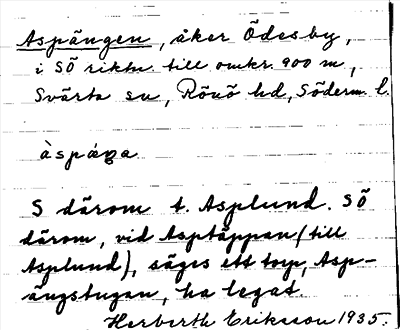 Aspängen, åker Ödesby,
i SÖ riktn till omkr. 900 m,
Svärta sn, Rönö hd, Söderm. l.
àspáŋa
S därom t. Asplund. SÖ
därom, vid Asptäppan (till
Asplund), säges ett torp, Asp-
ängstugan, ha legat.
Herberth Eriksson 1935.